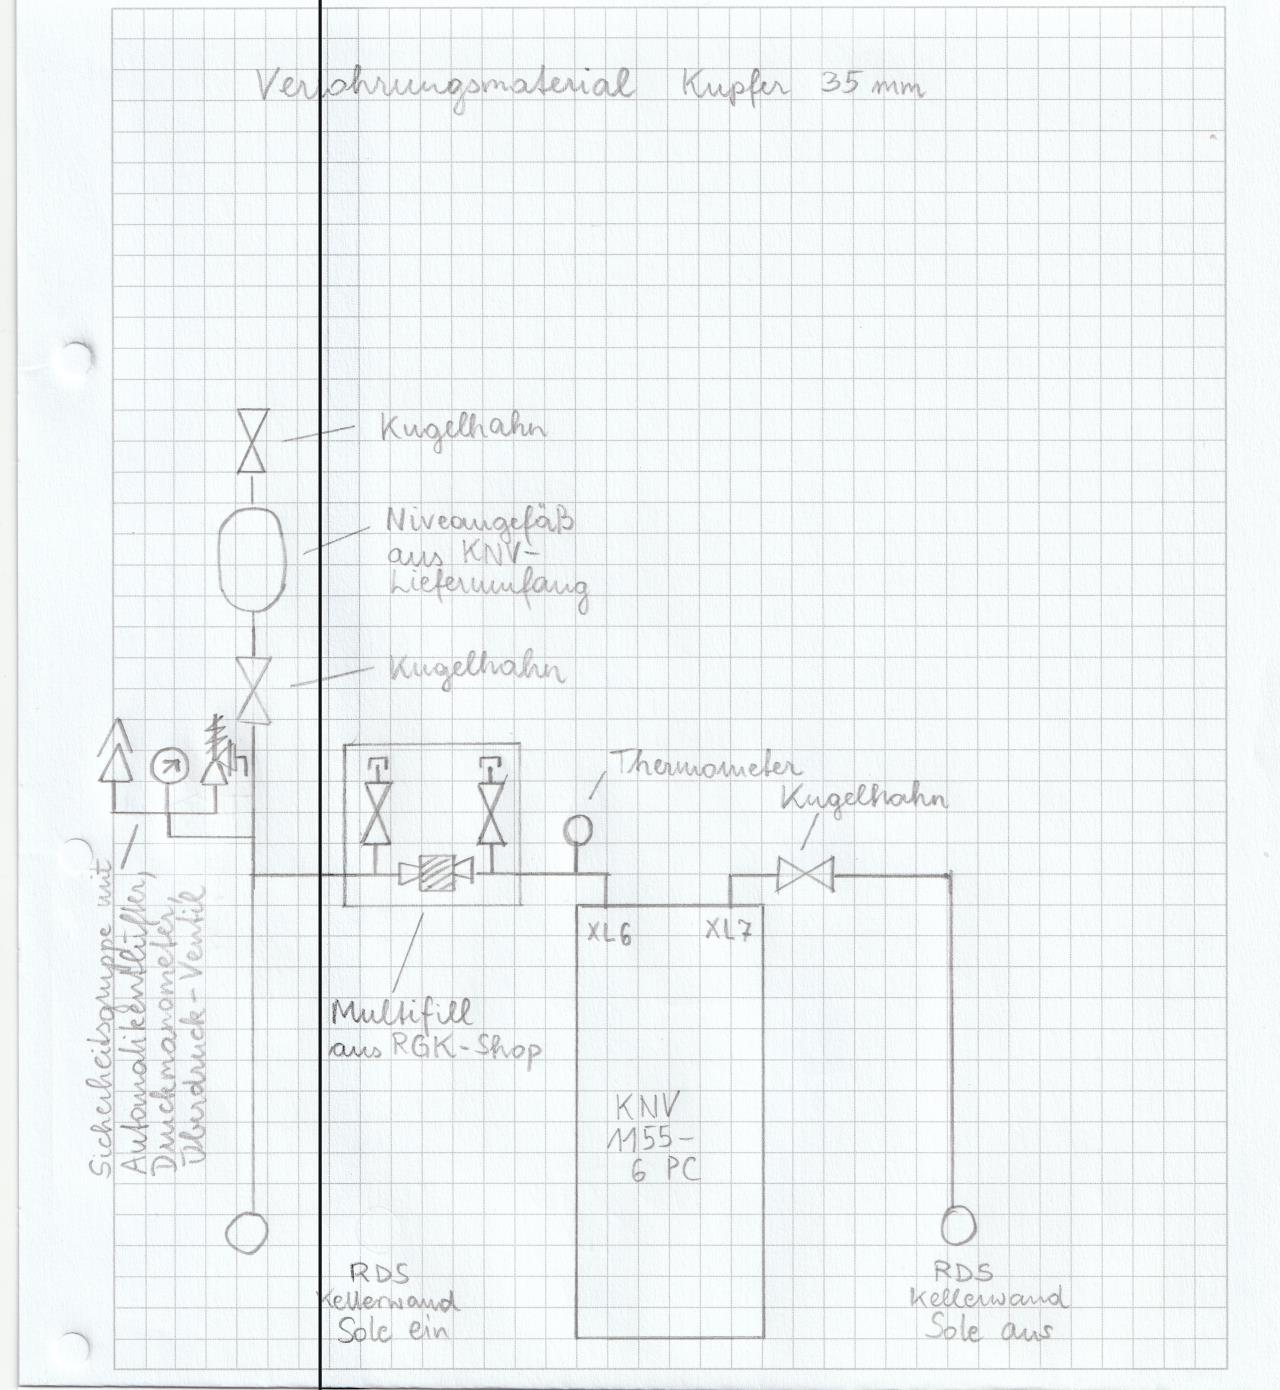 Verrohrungsmaterial Kupfer 35 mm
Kugelhahn
Niveaugefäß
aus KNV-
Lieferumfang
Kugelhahn
Thermometer
Kugelhahn
Sicherheitsgruppe mit
Automatikentlüfter,
Druckmanometer,
Überdruck-Ventil
XL6
XL7
Multifill
aus RGK-Shop
KNV
1155-
6 PC
RDS
Kellerwand
Sole ein
RDS
Kellerwand
Sole aus